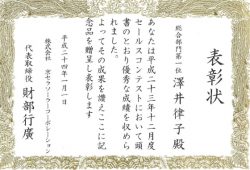 表彰状
総合部門第一位
澤井律子殿
あなたは平成二十三年十二月度
セールスコンテストにおいて頭
書のとおり優秀な成績を収めら
れました。
よってその成果を讃えここに記
念品を贈呈し表彰します
平成二十四年一月一日
株式会社 京セラソーラーコーポレーション
代表取締役 財部行廣